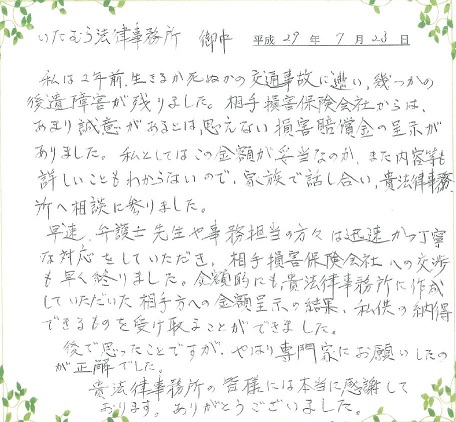 いたむら法律事務所 御中 平成 29 年 7 月 23 日
私は2年前、生きるか死ぬかの交通事故に遭い、幾つかの
後遺障害が残りました。相手損害保険会社からは、
あまり誠意があるとは思えない損害賠償金の呈示が
ありました。私としてはこの金額が妥当なのか、また内容等も
詳しいこともわからないので、家族で話し合い、貴法律事務
所へ相談に参りました。
早速、弁護士先生や事務担当の方々は迅速かつ丁寧
な対応をしていただき、相手損害保険会社への交渉
も早く終りました。金額的にも貴法律事務所に作成
していただいた相手方への金額呈示の結果、私供の納得
できるものを受け取ることができました。
後で思ったことですが、やはり専門家にお願いしたの
が正解でした。
貴法律事務所の皆様には本当に感謝して
おります。ありがとうございました。